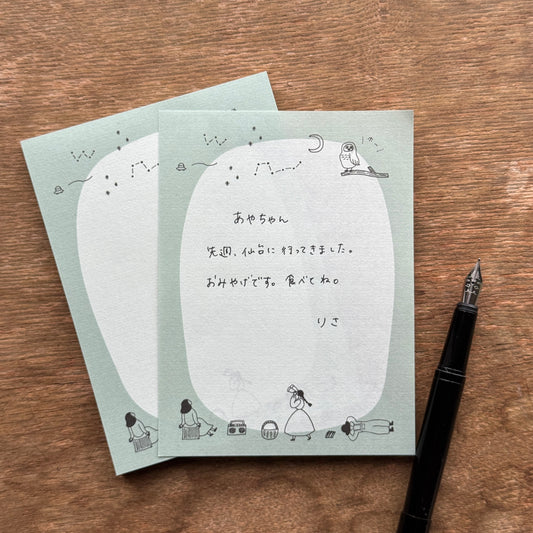 あやちゃん
先週、仙台に行ってきました。
おみやげです。食べてね。
りさ